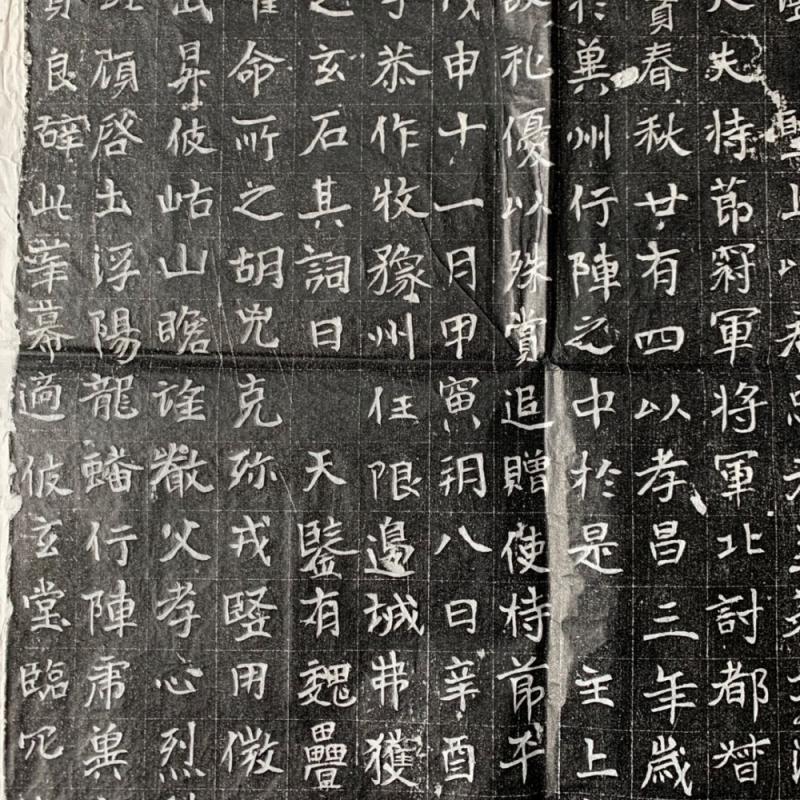 夫持節冠軍将軍北討都督
賁春秋廿有四以孝昌三年歲
於冀州行陣之中於是 主上
故礼優以殊賞追贈使持節平
戊申十一月甲寅朔八日辛酉
恭作牧豫州任限邊城弗獲
之玄石其詞曰 天鑒有魏疊
命所之胡兇克殄戎竪用
昇彼岵山瞻誰父孝心烈
啓土浮陽龍蟠行陣虎
良辭此華幕適彼玄堂臨穴